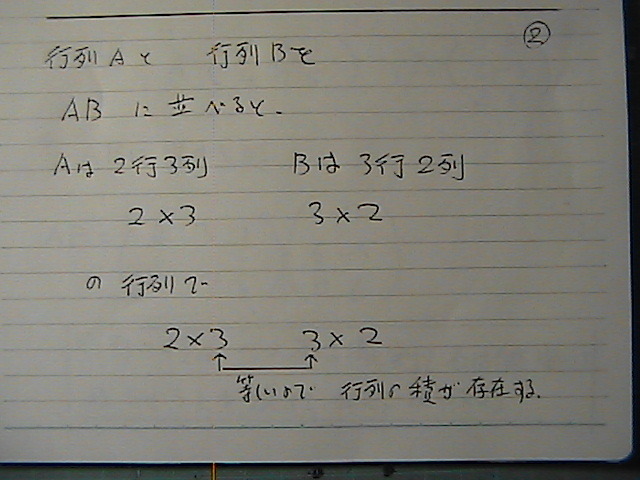 ②
行列Aと 行列Bを
AB に並べると、
Aは 2行3列 Bは 3行2列
2×3 3×2
の 行列で
2×3 3×2
等しいので 行列の積が存在する.